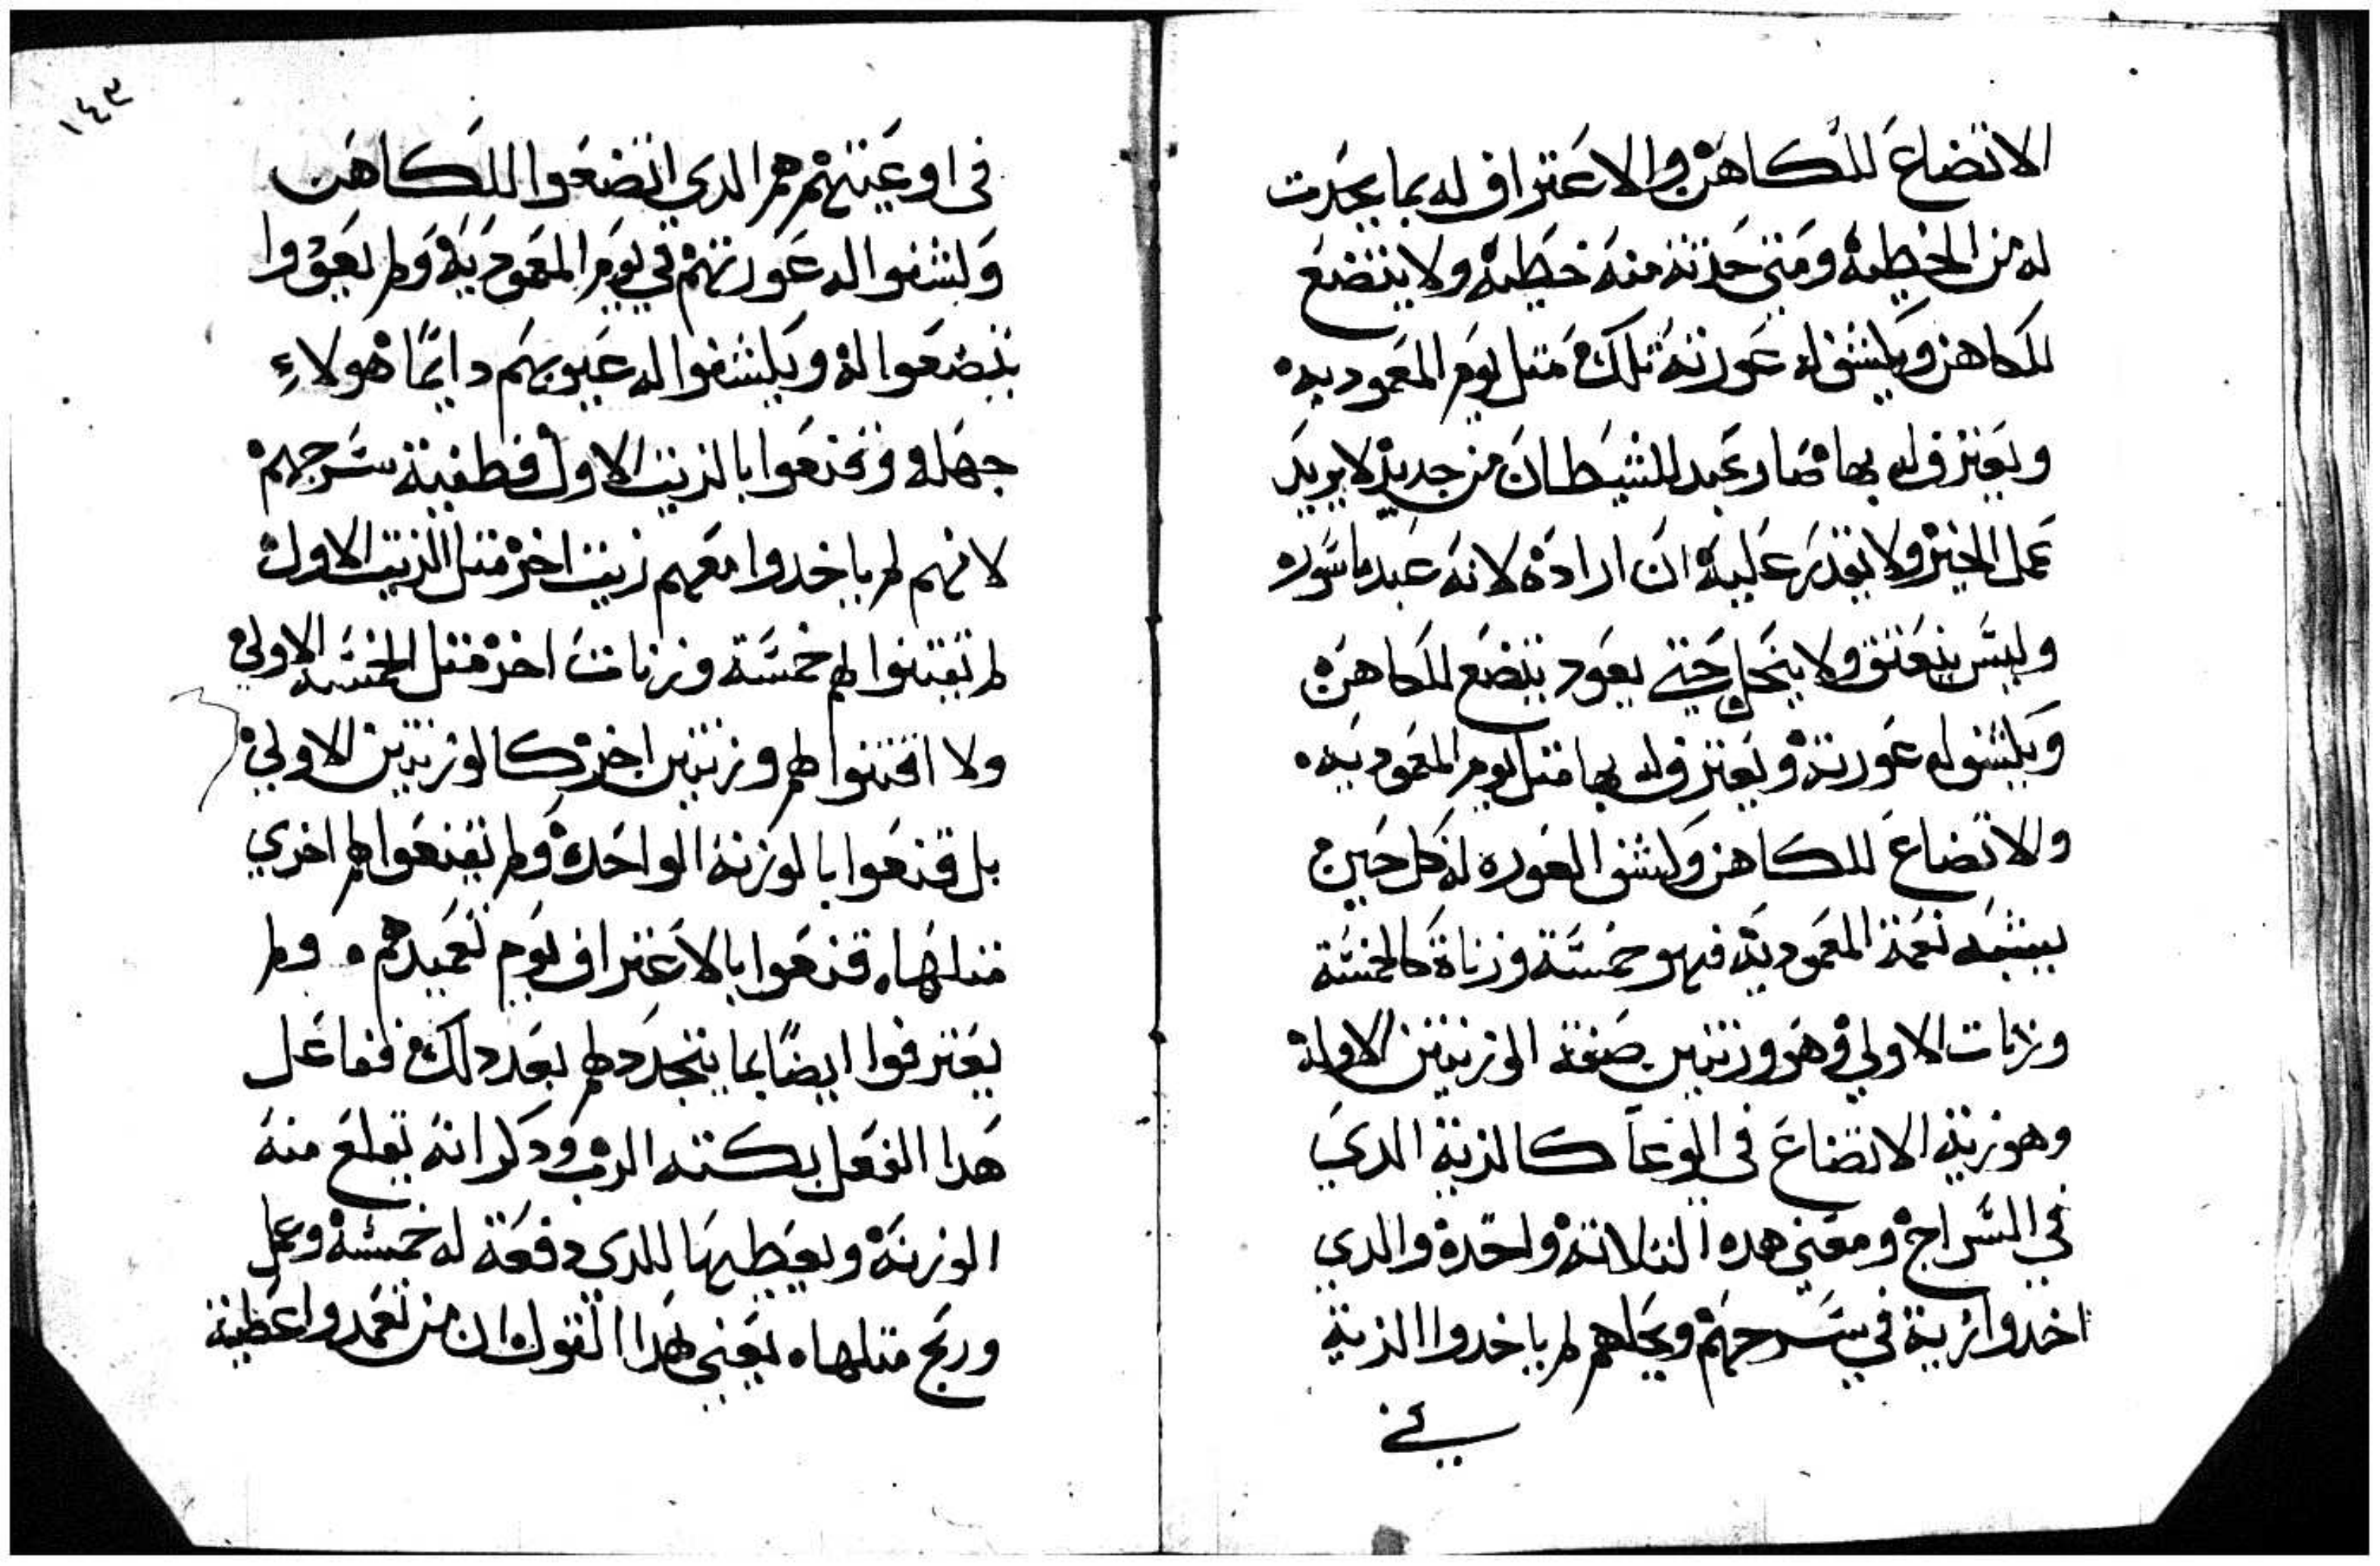 الاتضاع للكاهن والاعتراف له بما يجدت
له من الخطيه ومتي حدثته منه خطيه ولا يتضع
للكاهن ويكشف له عورته تلك متل يوم المعموديه
ويعترف له بها صار عبد للشيطان من جديد لا يريد
عمل الخير ولا يقدر عليه ان اراده لانه عبد ماسوره
وليس ينعتق ولا ينحل حتي يعود يتضع للكاهن
ويكشف له عورته ويعترف له بها متل يوم المعموديه
والاتضاع للكاهن وكشف العوره له كل حين
يشبه نعمة المعموديه فهو خمسة وزناة كالخمسة
وزنات الاولي وهو وزنتين صفة الوزنتين الاوله
وهو زيته الاتضاع في الوعا كالزيته الدي
في السراج ومعني هده التلاته واحدة والدي
اخدوا زيتة في سرجهم وجلهم لم ياخدوا الزيتة
في
١٤٣
في اوعيتهم هم الدي اتضعوا للكاهن
وكشفوا له عورتهم في يوم المعموديه ولم يعودوا
يتضعوا له ويكشفوا له عيوبهم دايمًا هولاء
جهله وقنعوا بالزيت الاول فطفية سرجهم
لانهم لم ياخدوا معهم زيت اخر متل الزيت الاول
لم يقتنوا لهم خمسة وزنات اخر متل الخمسه الاولي
ولا اقتنوا لهم وزنتين اخر كالوزنتين الاولي
بل قنعوا بالوزنه الواحده ولم يقنعوا لهم اخري
متلها قنعوا بالاعتراف يوم تعميدهم ولم
يعترفوا ايضًا بما يتجدد لهم بعد دلك ففاعل
هدا الفعل بكته الرب ودكر انه يقلع منه
الوزنة ويعطيها للدي دفعة له خمسة وعمل
وربح متلها يعني بهدا القول ان من تعمد واعطية